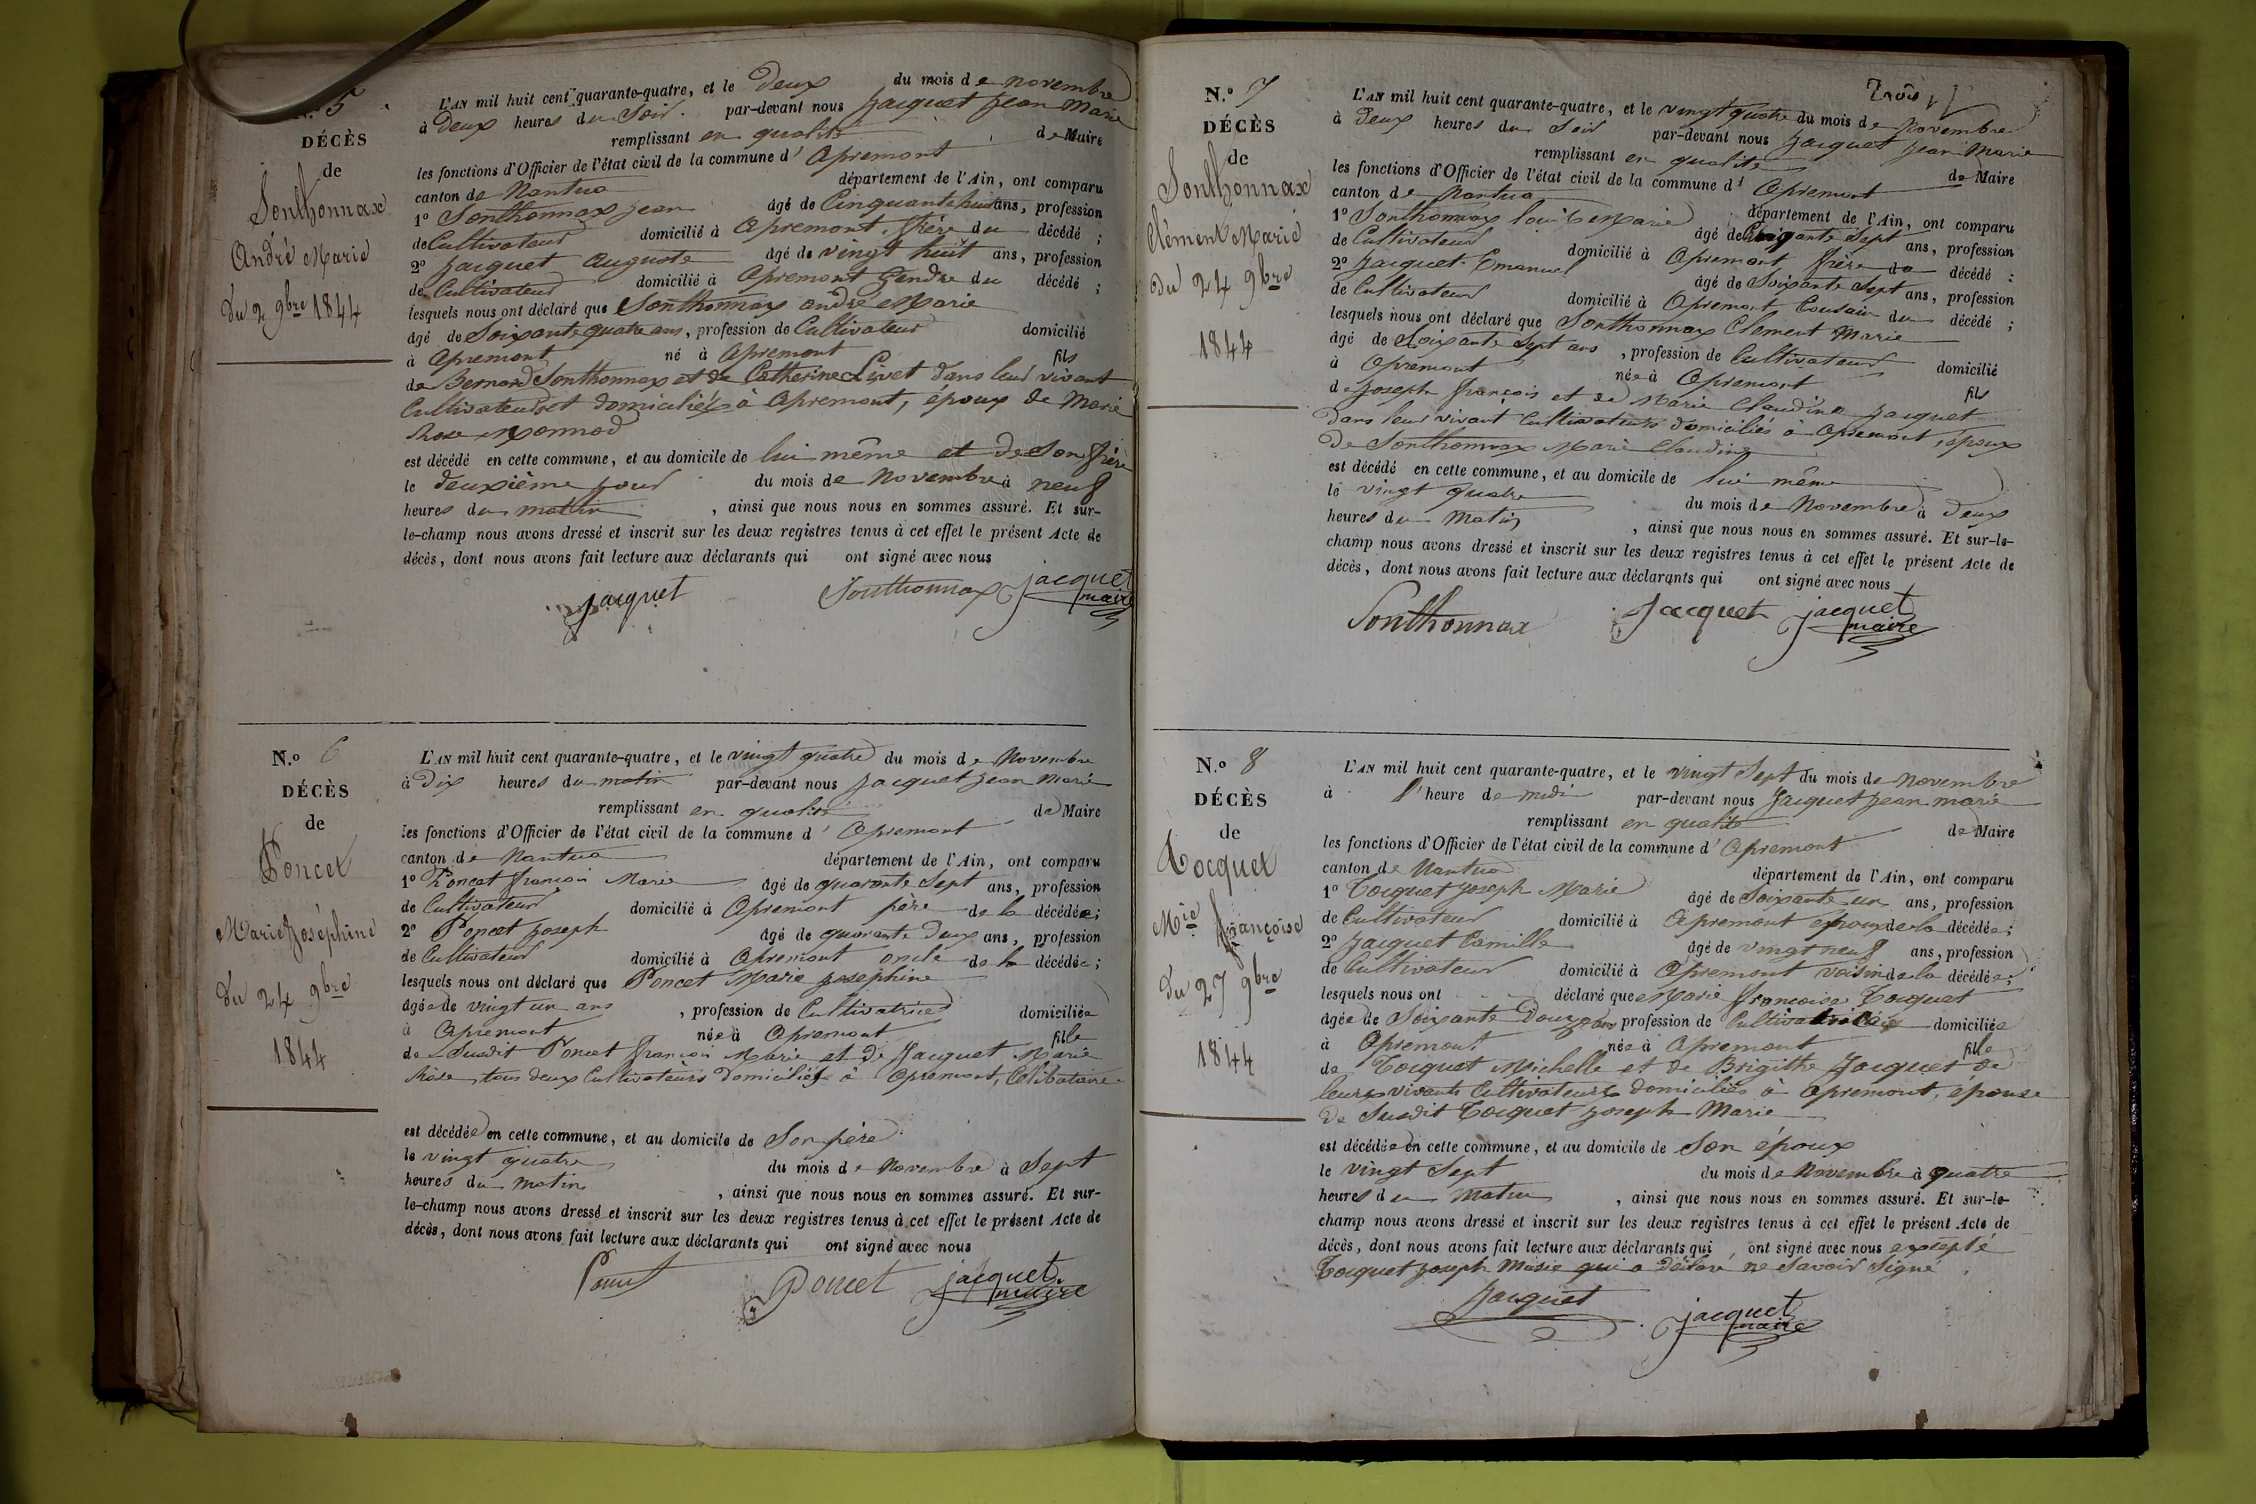 N.o 5
DÉCÈS
de
Sonthonnax
André Marie
du 2 9bre 1844
L'AN mil huit cent quarante-quatre, et le Deux du mois de novembre
à Deux heures du Soir. par-devant nous Jacquet Jean Marie
remplissant en qualité de Maire
les fonctions d'Officier de l'état civil de la commune d' Apremont
canton de Nantua département de l'Ain, ont comparu
1o Sonthonnax Jean âgé de Cinquante huit ans, profession
de Cultivateur domicilié à Apremont, frère du décédé ;
2o Jacquet Auguste âgé de vingt huit ans, profession
de Cultivateur domicilié à Apremont Gendre du décédé ;
lesquels nous ont déclaré que Sonthonnax André Marie
âgé de Soixante quatre ans, profession de Cultivateur domicilié
à Apremont né à Apremont fils
de Bernard Sonthonnax et de Catherine Livet dans leur vivant
Cultivateurs et domiciliés à Apremont, époux de Marie
Rose Monnod
est décédé en cette commune, et au domicile de lui même et de Son frère
le deuxième jour du mois de Novembre à neuf
heures du matin, ainsi que nous nous en sommes assuré. Et sur-
le-champ nous avons dressé et inscrit sur les deux registres tenus à cet effet le présent Acte de
décès, dont nous avons fait lecture aux déclarants qui ont signé avec nous
Jacquet Sonthonnax Jacquet
maire
N.o 6
DÉCÈS
de
Poncet
Marie Joséphine
du 24 9bre
1844
L'AN mil huit cent quarante-quatre, et le vingt quatre du mois de Novembre
à Dix heures du matin par-devant nous Jacquet Jean Marie
remplissant en qualité de Maire
les fonctions d'Officier de l'état civil de la commune d' Apremont
canton de Nantua département de l'Ain, ont comparu
1o Poncet françois Marie âgé de quarante Sept ans, profession
de Cultivateur domicilié à Apremont père de la décédée;
2o Poncet Joseph âgé de quarante deux ans, profession
de Cultivateur domicilié à Apremont oncle de la décédée;
lesquels nous ont déclaré que Poncet Marie Josephine
âgée de vingt un ans, profession de Cultivatrice domiciliée
à Apremont née à Apremont fille
de Susdit Poncet françois Marie et de Jacquet Marie
Rose tous deux Cultivateurs domiciliés à Apremont, Célibataire
est décédée en cette commune, et au domicile de Son père
le vingt quatre du mois de Novembre à Sept
heures du matin, ainsi que nous nous en sommes assuré. Et sur-
le-champ nous avons dressé et inscrit sur les deux registres tenus à cet effet le présent Acte de
décès, dont nous avons fait lecture aux déclarants qui ont signé avec nous
Poncet Poncet Jacquet
maire
Trois
N.o 7
DÉCÈS
de
Sonthonnax
Clément Marie
du 24 9bre
1844
L'AN mil huit cent quarante-quatre, et le vingt quatre du mois de Novembre
à Deux heures du Soir par-devant nous Jacquet Jean Marie
remplissant en qualité de Maire
les fonctions d'Officier de l'état civil de la commune d' Apremont
canton de Nantua département de l'Ain, ont comparu
1o Sonthonnax Louis Marie âgé de Cinquante Sept ans, profession
de Cultivateur domicilié à Apremont frère du décédé ;
2o Jacquet Emanuel âgé de Soixante Sept ans, profession
de Cultivateur domicilié à Apremont Cousin du décédé ;
lesquels nous ont déclaré que Sonthonnax Clement Marie
âgé de Soixante Sept ans, profession de Cultivateur domicilié
à Apremont née à Apremont fils
de Joseph françois et de Marie Claudine Jacquet
dans leur vivant Cultivateurs domiciliés à Apremont, époux
De Sonthonnax Marie Claudine
est décédé en cette commune, et au domicile de lui même
le vingt quatre du mois de Novembre à Deux
heures du Matin, ainsi que nous nous en sommes assuré. Et sur-le-
champ nous avons dressé et inscrit sur les deux registres tenus à cet effet le présent Acte de
décès, dont nous avons fait lecture aux déclarants qui ont signé avec nous
Sonthonnax Jacquet Jacquet
maire
N.o 8
DÉCÈS
de
Tocquet
Mie françoise
du 27 9bre
1844
L'AN mil huit cent quarante-quatre, et le vingt Sept du mois de Novembre
à l'heure de midi par-devant nous Jacquet Jean marie
remplissant en qualité de Maire
les fonctions d'Officier de l'état civil de la commune d' Apremont
canton de Nantua département de l'Ain, ont comparu
1o Tocquet Joseph Marie âgé de Soixante un ans, profession
de Cultivateur domicilié à Apremont époux de la décédée;
2o Jacquet Camille âgé de vingt neuf ans, profession
de Cultivateur domicilié à Apremont voisin de la décédée;
lesquels nous ont déclaré que Marie françoise Tocquet
âgée de Soixante Douze ans profession de Cultivatrice domiciliée
à Apremont née à Apremont fille
de Tocquet Michelle et de Brigithe Jacquet de
leurs vivants Cultivateurs domiciliés à Apremont, épouse
De Susdit Tocquet Joseph Marie
est décédée en cette commune, et au domicile de Son époux
le vingt Sept du mois de Novembre à quatre
heures du Matin, ainsi que nous nous en sommes assuré. Et sur-le-
champ nous avons dressé et inscrit sur les deux registres tenus à cet effet le présent Acte de
décès, dont nous avons fait lecture aux déclarants qui ont signé avec nous excepté
Tocquet Joseph Marie qui a déclaré ne Savoir Signé
Jacquet Jacquet
maire